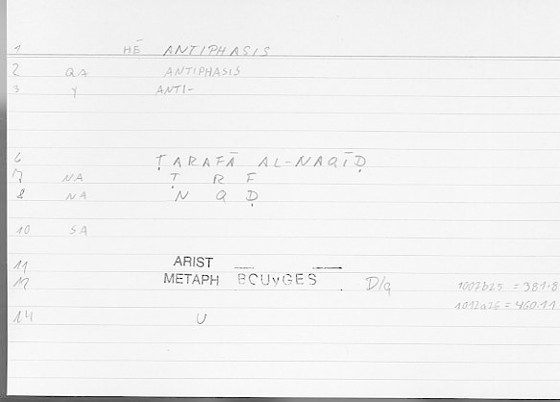 1 HĒ ANTIPHASIS
2 QA ANTIPHASIS
3 Y ANTI-
6 ṬARAFĀ AL-NAQĪḌ
7 NA Ṭ R F
8 NA N Q Ḍ
10 SA
11 ARIST
12 METAPH BOUYGES D/g 1007b25 = 381.8
1012a26 = 460.11
14 U